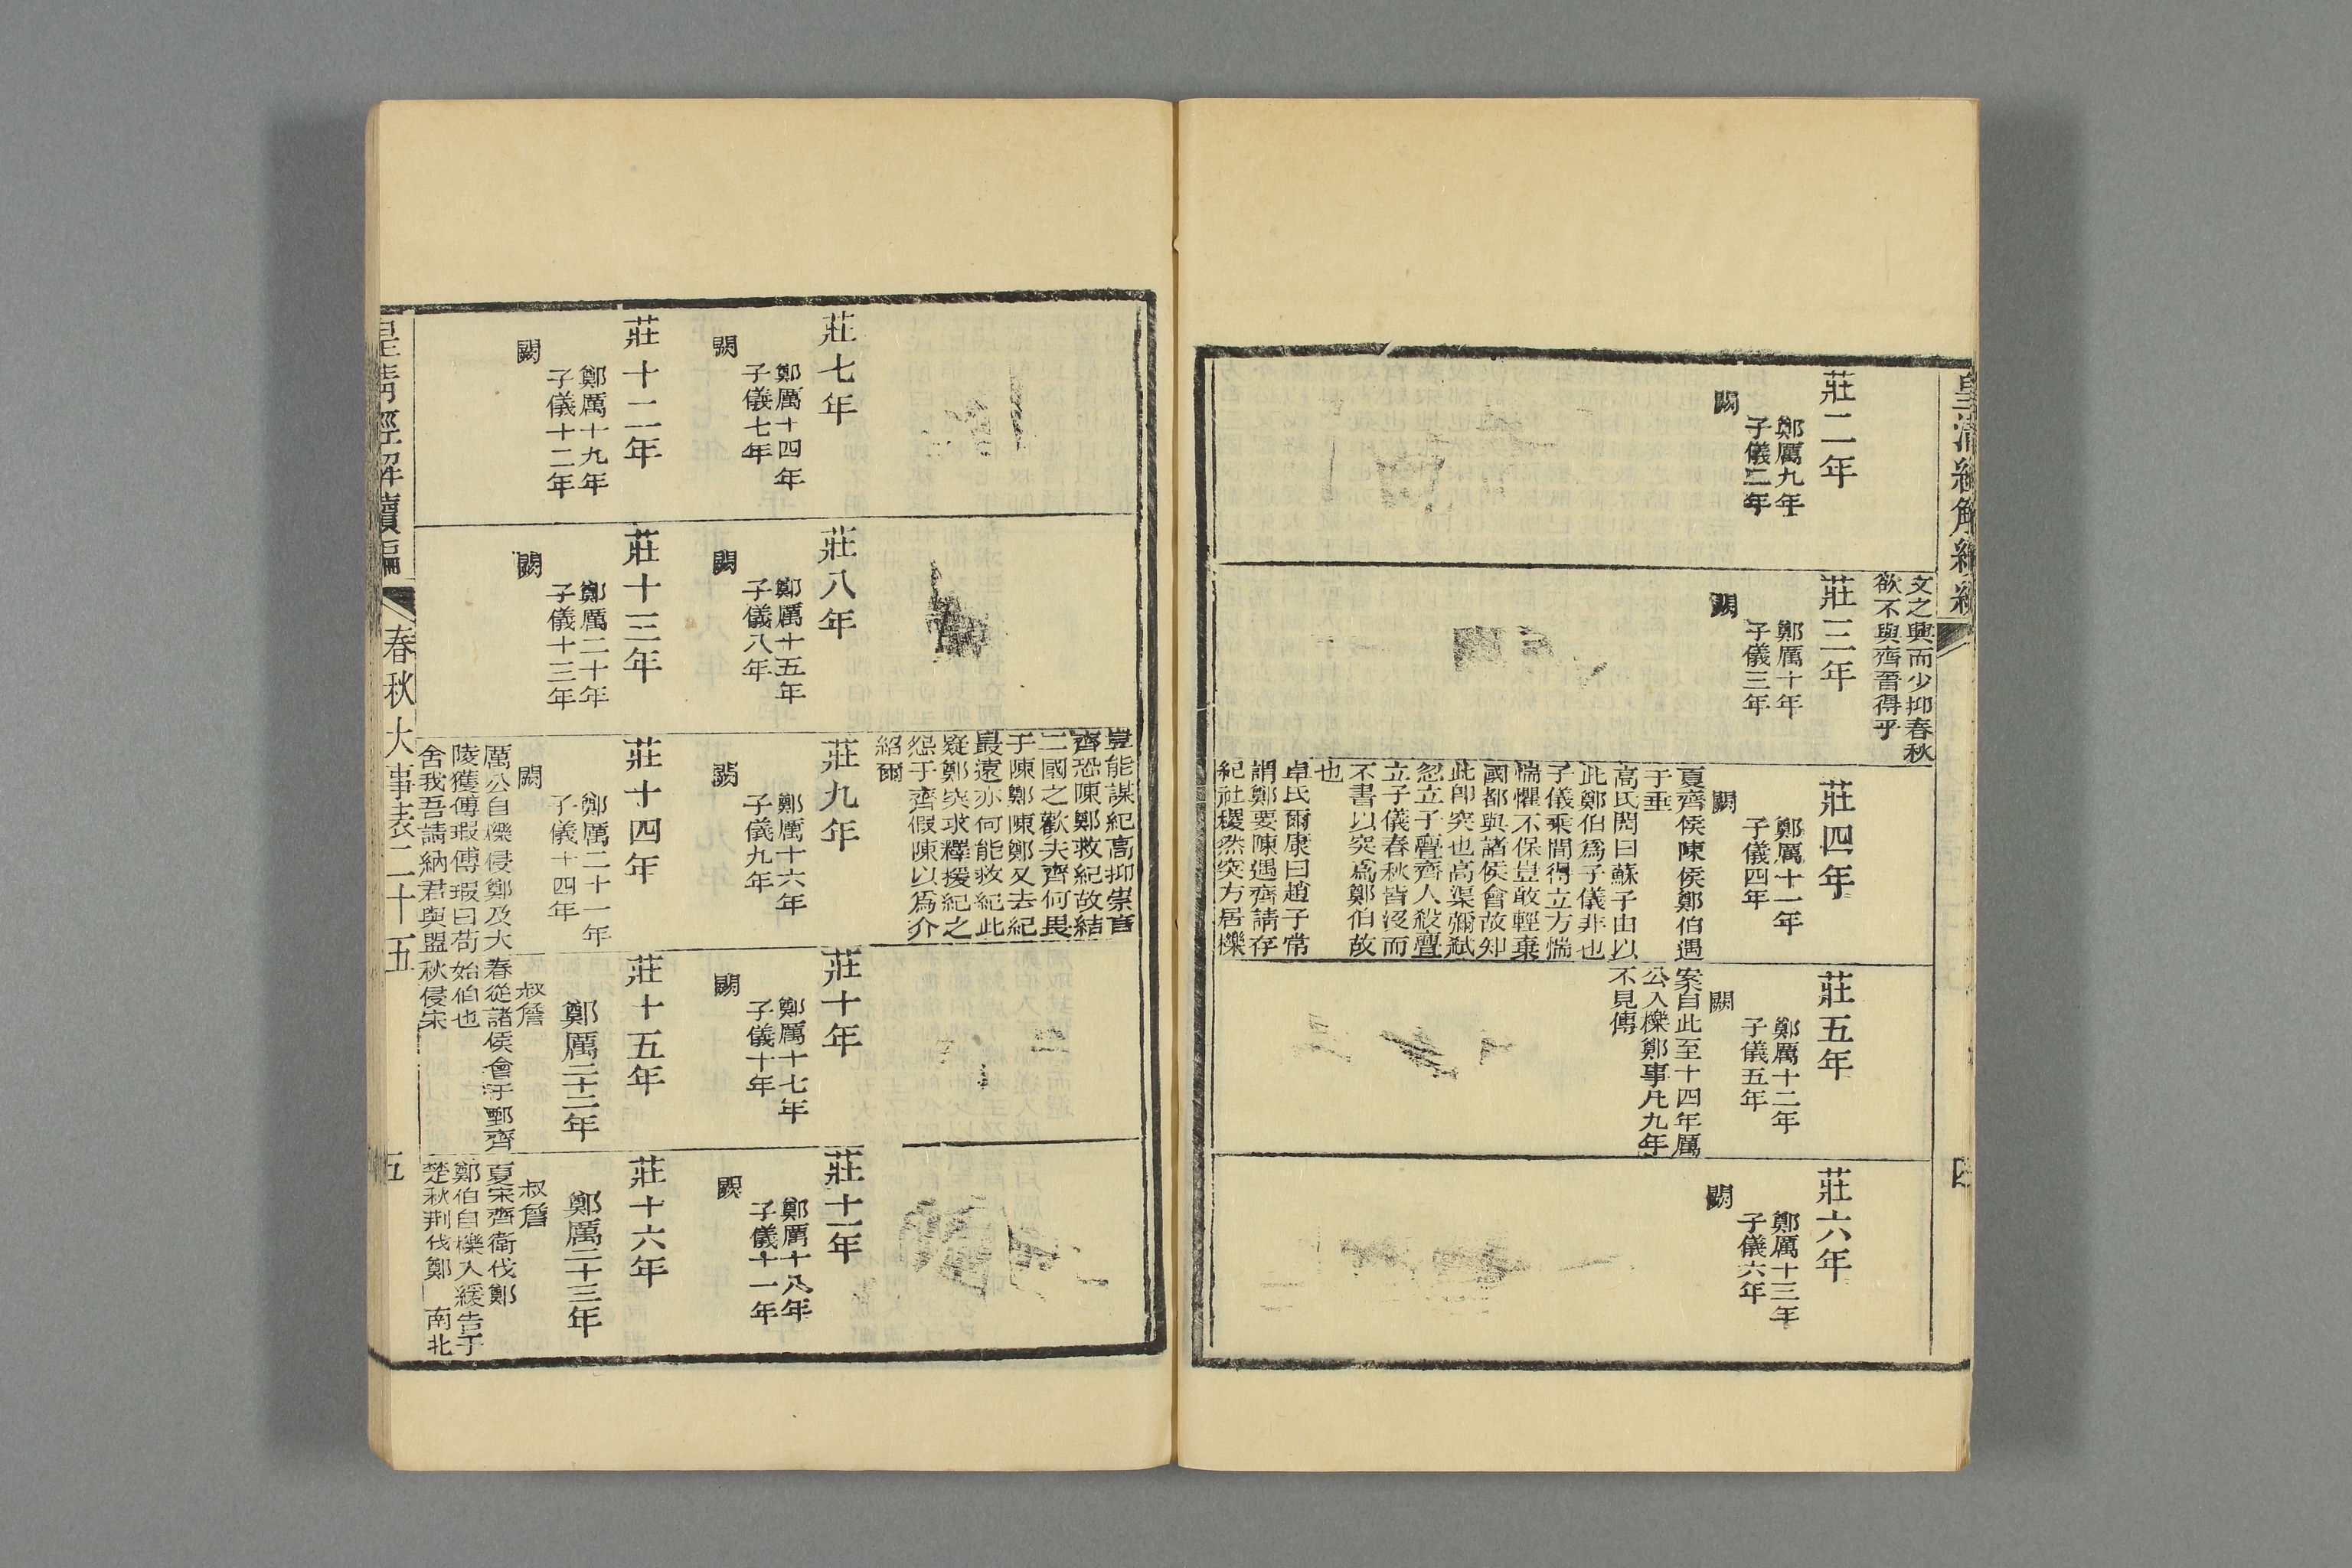 皇清經解續編
四
文之興而少抑春秋
欲不與齊晉得乎
莊二年
鄭厲九年
子儀二年
闕
莊三年
鄭厲十年
子儀三年
闕
莊四年
鄭厲十一年
子儀四年
闕
夏齊侯陳侯鄭伯遇
于垂
高氏閌曰蘇子由以
此鄭伯爲子儀非也
子儀乘間得立方惴
惴懼不保豈敢輕棄
國都與諸侯會故知
此卽突也高渠彌弑
忽立子亹齊人殺亹
立子儀春秋皆沒而
不書以突爲鄭伯故
也
卓氏爾康曰趙子常
謂鄭要陳遇齊請存
紀社稷然突方居櫟
莊五年
鄭厲十二年
子儀五年
闕
案自此至十四年厲
公入櫟鄭事凡九年
不見傳
莊六年
鄭厲十三年
子儀六年
闕
豈能謀紀高抑崇言
齊恐陳鄭救紀故結
二國之歡夫齊何畏
于陳鄭陳鄭又去紀
最遠亦何能救紀此
疑鄭突求釋援紀之
怨于齊假陳以爲介
紹爾
莊七年
鄭厲十四年
子儀七年
闕
莊八年
鄭厲十五年
子儀八年
闕
莊九年
鄭厲十六年
子儀九年
闕
莊十年
鄭厲十七年
子儀十年
闕
莊十一年
鄭厲十八年
子儀十一年
闕
莊十二年
鄭厲十九年
子儀十二年
闕
莊十三年
鄭厲二十年
子儀十三年
闕
莊十四年
鄭厲二十一年
子儀十四年
闕
厲公自櫟侵鄭及大
陵獲傅瑕傅瑕曰苟
舍我吾請納君與盟
莊十五年
鄭厲二十二年
叔詹
春從諸侯會于鄄齊
始伯也
秋侵宋
莊十六年
鄭厲二十三年
叔詹
夏宋齊衛伐鄭
鄭伯自櫟入緩告于
楚秋荆伐鄭 南北
皇清經解續編
春秋大事表二十五
五